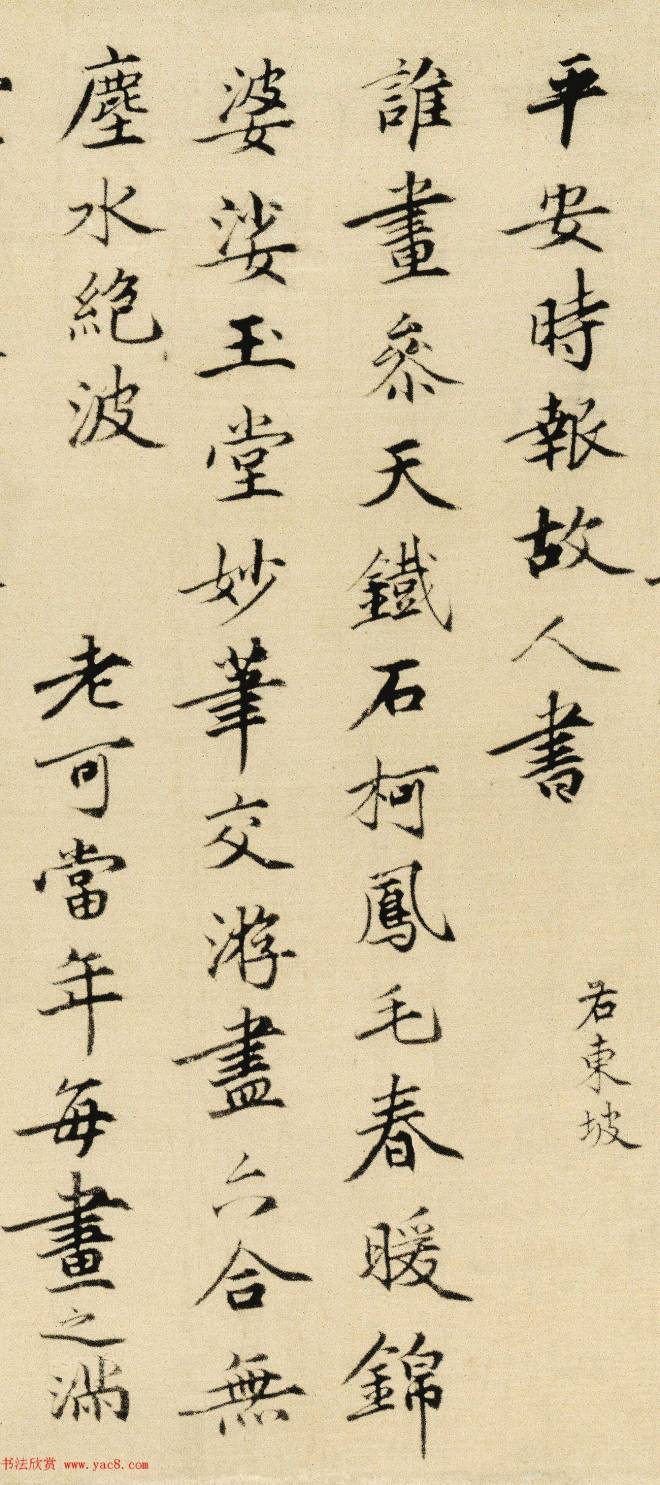 平安時報故人書
若東坡
誰畫參天鐵石柯鳳毛春暖錦
婆娑玉堂妙筆交游盡六合無
塵水絕波
老可當年每畫之滿
书法欣赏 www.yac8.com